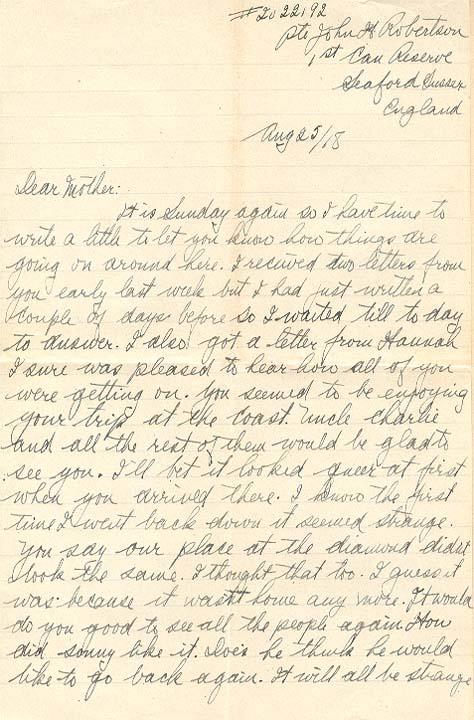 # 2022192
Pte John H Robertson
1st Can Reserve
Seaford Sussex
England
Aug 25/18
Dear Mother:
It is Sunday again so I have time to
write a little to let you know how things are
going on around here. I received two letters from
you early last week but I had just written a
couple of days before so I waited till to day
to answer. I also got a letter from Hannah
I sure was pleased to hear how all of you
were getting on. You seemed to be enjoying
your trip at the coast. Uncle Charlie
and all the rest of them would be glad to
see you. I'll bet it looked queer at first
when you arrived there. I know the first
time I went back down it seemed strange.
You say our place at the diamond didn't
look the same. I thought that too. I guess it
was because it wasn't home any more. It would
do you good to see all the people again. How
did sonny like it. Does he think he would
like to go back again. It will all be strange